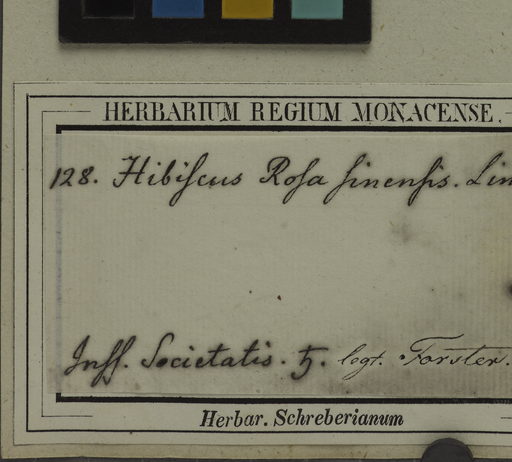 HERBARIUM REGIUM MONACENSE.
128. Hibiſcus Roſa ſinenſis. Lin
Inſſ. Societatis. ♄. legt. Forster.
Herbar. Schreberianum